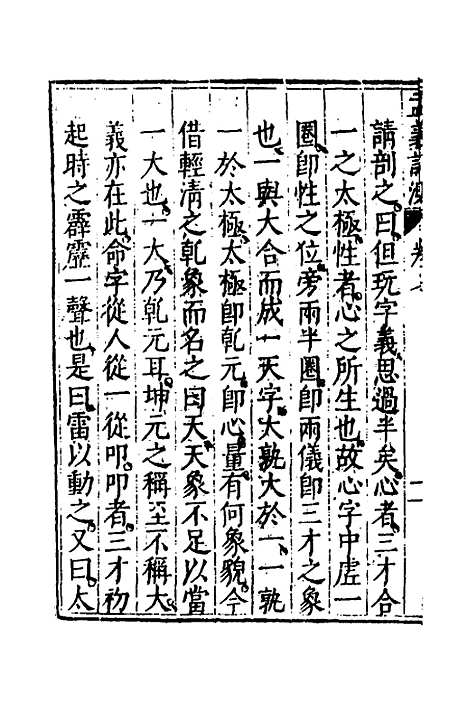 孟義訂測 卷七 二
請剖之曰但玩字義思過半矣心者三才合
一之太極性者心之所生也故心字中虛一
圈卽性之位旁兩半圈卽兩儀卽三才之象
也一與大合而成一天字大孰大於一一孰
一於太極太極卽乾元卽心量有何象貌今
借輕清之乾象而名之曰天天象不足以當
一大也一大乃乾元耳坤元之稱至不稱大
義亦在此命字從人從一從叩叩者三才初
起時之霹靂一聲也是曰雷以動之又曰太